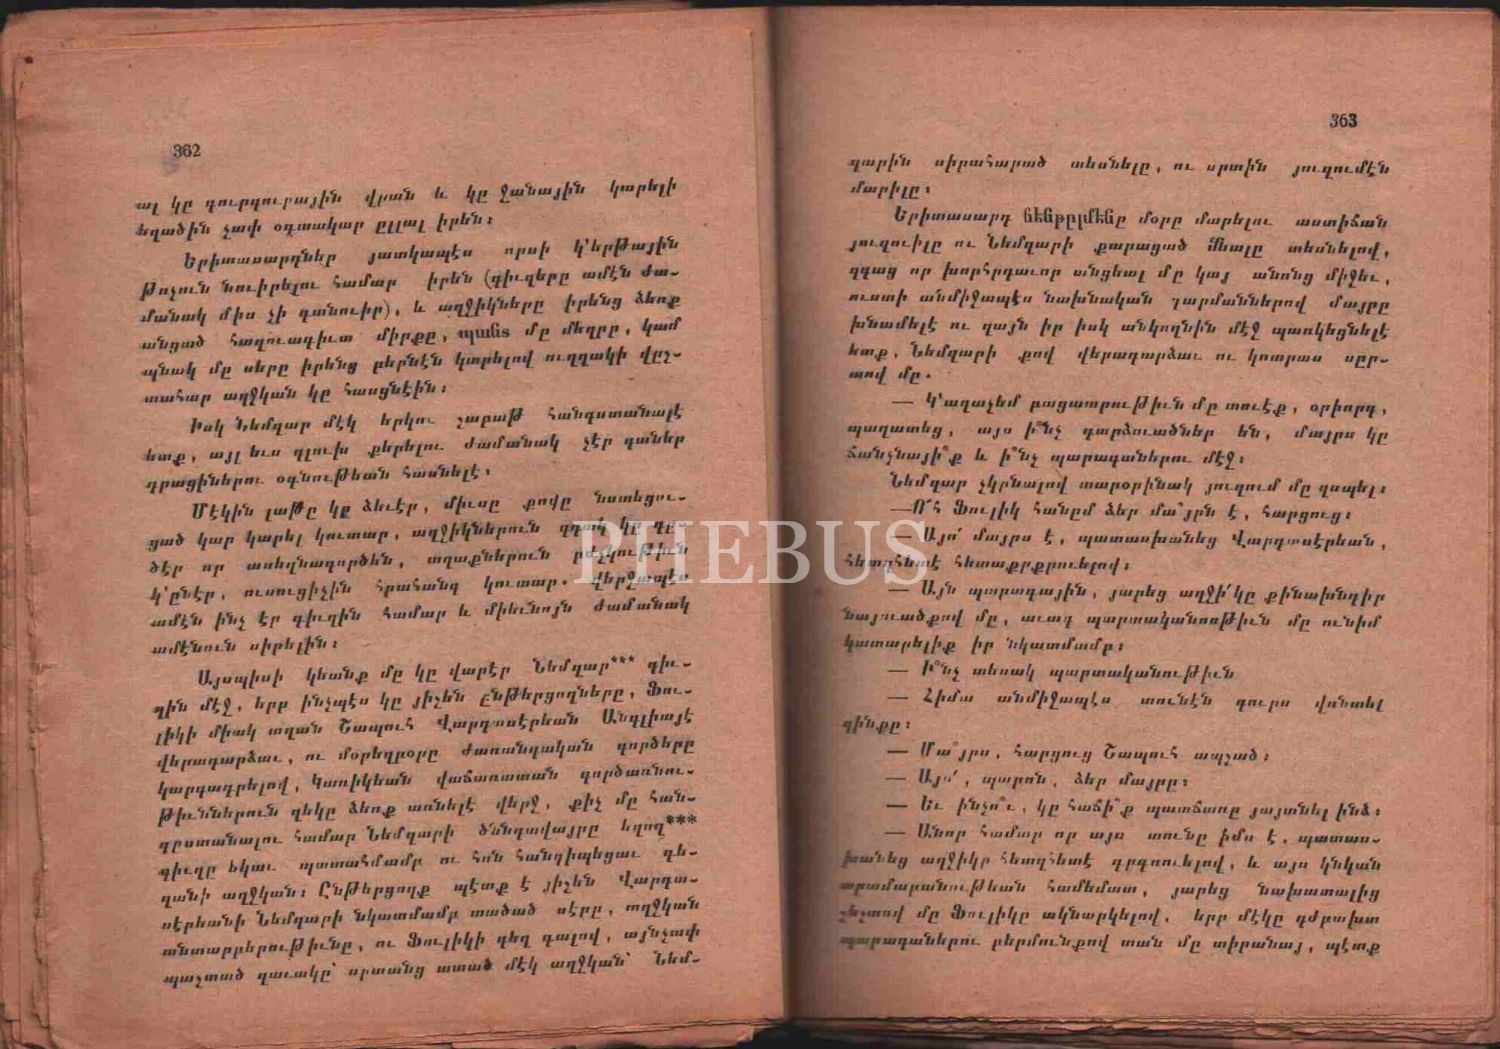 362
ալ կը գուրգուրային վրան և կը ջանային կարելի
եղածին չափ օգտակար ըլլալ իրեն։
Երիտասարդներ յատկապէս որսի կ'երթային
Թռչուն նուիրելու համար իրեն (գիւղերը ամէն ժա-
մանակ միս չի գտնուիր), և աղջիկները իրենց ձեռք
անցած հազուագիւտ միրքը, պանs մը մեղրը, կամ
պնակ մը սերը իրենց բերնէն կտրելով ուղղակի վըշ-
տահար աղջկան կը հասցնէին։
Իսկ Նեմզար մէկ երկու շաբաթ հանգստանալէ
ետք, այլ ևս գլուխ քերելու ժամանակ չէր գտներ
դրացիներու օգնութեան հասնելէ։
Մէկին լաթը կը ձեւէր, միւսը քովը նստեցու-
ցած կար կարել կուտար, աղջիկներուն գդակ կը շի-
ծէր որ ասեղնագործեն, տղաքներուն բժշկութիւն
կ'ընէր, ուսուցիչին հրահանգ կուտար. վերջապէս
ամէն ինչ էր գիւղին համար և միեւնոյն ժամանակ
ամէնուն սիրելին։
Այսպիսի կեանք մը կը վարէր Նեմզար*** գիւ-
ղին մէջ, երբ ինչպէս կը յիշեն ընթերցողները, Ֆու-
լիկի միակ տղան Շապուհ Վարդասէրեան Անգլիայէ
վերադարձաւ, ու մօրեղբօրը ժառանգական գործերը
կարգադրելով, Կառիկեան վաճառատան գործառնու-
թիւններուն ղեկը ձեռք առնելէ վերջ, քիչ մը հան-
գըստանալու համար Նեմզարի ծննդավայրը եղող***
գիւղը եկաւ պատահմամբ ու հոն հանդիպեցաւ դե-
ղանի աղջկան։ Ընթերցողք պէտք է յիշեն Վարդա-
սէրեանի Նեմզարի նկատմամբ տածած սէրը, աղջկան
անտարբերութիւնը, ու Ֆուլիկի գեղ գալով, այնչափ
պաշտած զաւակը՝ սրտանց ատած մէկ աղջկան՝ Նեմ-
363
զարին սիրահարած տեսնելը, ու սրտին յուզումէն
մարիլը։
Երիտասարդ ճէնթըլմէնը մօրը մարելու աստիճան
յուզուիլը ու Նեմզարի քարացած մնալը տեսնելով,
զգաց որ խորհրդաւոր անցեալ մը կայ անոնց միջեւ,
ուստի անմիջապէս նախնական դարմաններով մայրը
խնամելէ ու զայն իր իսկ անկողնին մէջ պառկեցնելէ
ետք, Նեմզարի քով վերադարձաւ ու կոտրած սըր-
տով մը.
— Կ'աղաչեմ բացատրութիւն մը տուէք, օրիորդ,
պաղատեց, այս ի՞նչ դարձուածներ են, մայրս կը
ճանչնայի՞ք և ի՞նչ պարագաներու մէջ։
Նեմզար չկրնալով տարօրինակ յուզում մը զսպել։
—Ո՜հ Ֆուլիկ հանըմ ձեր մա՞յրն է, հարցուց։
— Այո՛ մայրս է, պատասխանեց Վարդասէրեան,
հետզհետէ հետաքրքրուելով։
— Այն պարագային, յարեց աղջի՛կը քինախնդիր
նայուածքով մը, աւագ պարտականութիւն մը ունիմ
կատարելիք իր նկատմամբ։
— Ի՞նչ տեսակ պարտականութիւն
— Հիմա անմիջապէս տունէն դուրս վռնտել
զինքը։
— Մա՞յրս, հարցուց Շապուհ ապշած։
— Այո՛, պարոն, ձեր մայրը։
— Եւ ինչո՞ւ, կը հաճի՞ք պատճառը յայտնել ինձ։
— Անոր համար որ այս տունը իմս է, պատաս-
խանեց աղջիկը հետզհետէ գրգռուելով, և այս կնկան
արամարանութեան համեմատ, յարեց նախատալից
շեշտով մը Ֆուլիկը ակնարկելով. երբ մէկը դժբախտ
պարագաներու բերմունքով տան մը տիրանայ, պէտք
PHEBUS